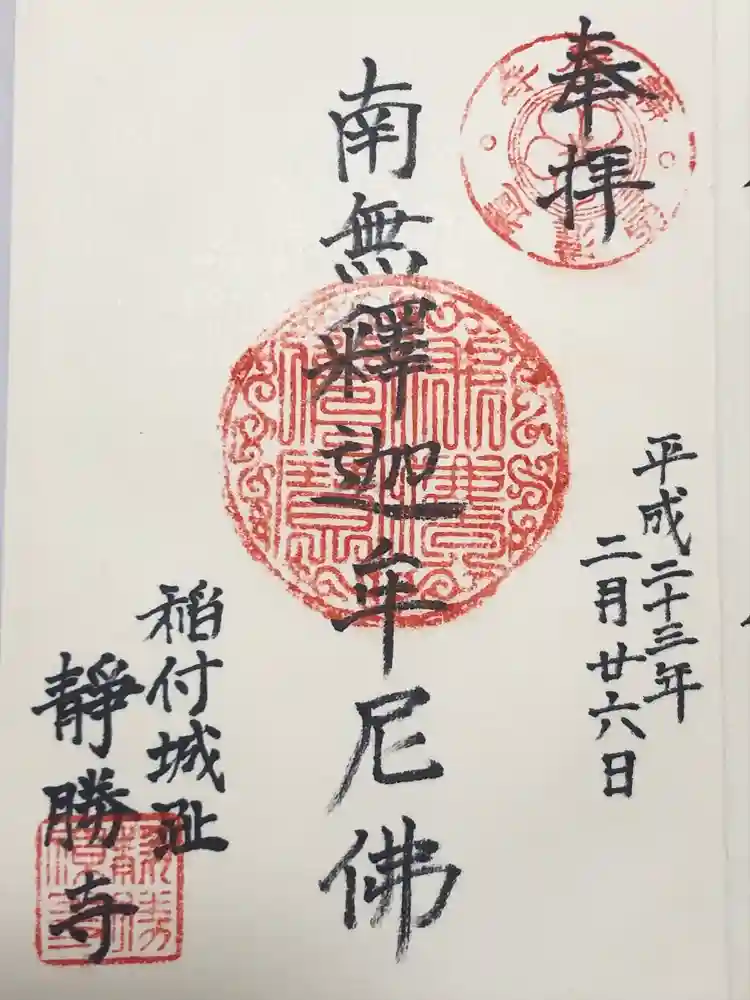 奉拝
平成二十三年
二月廿六日
南無釋迦牟尼佛
稲付城趾
静勝寺